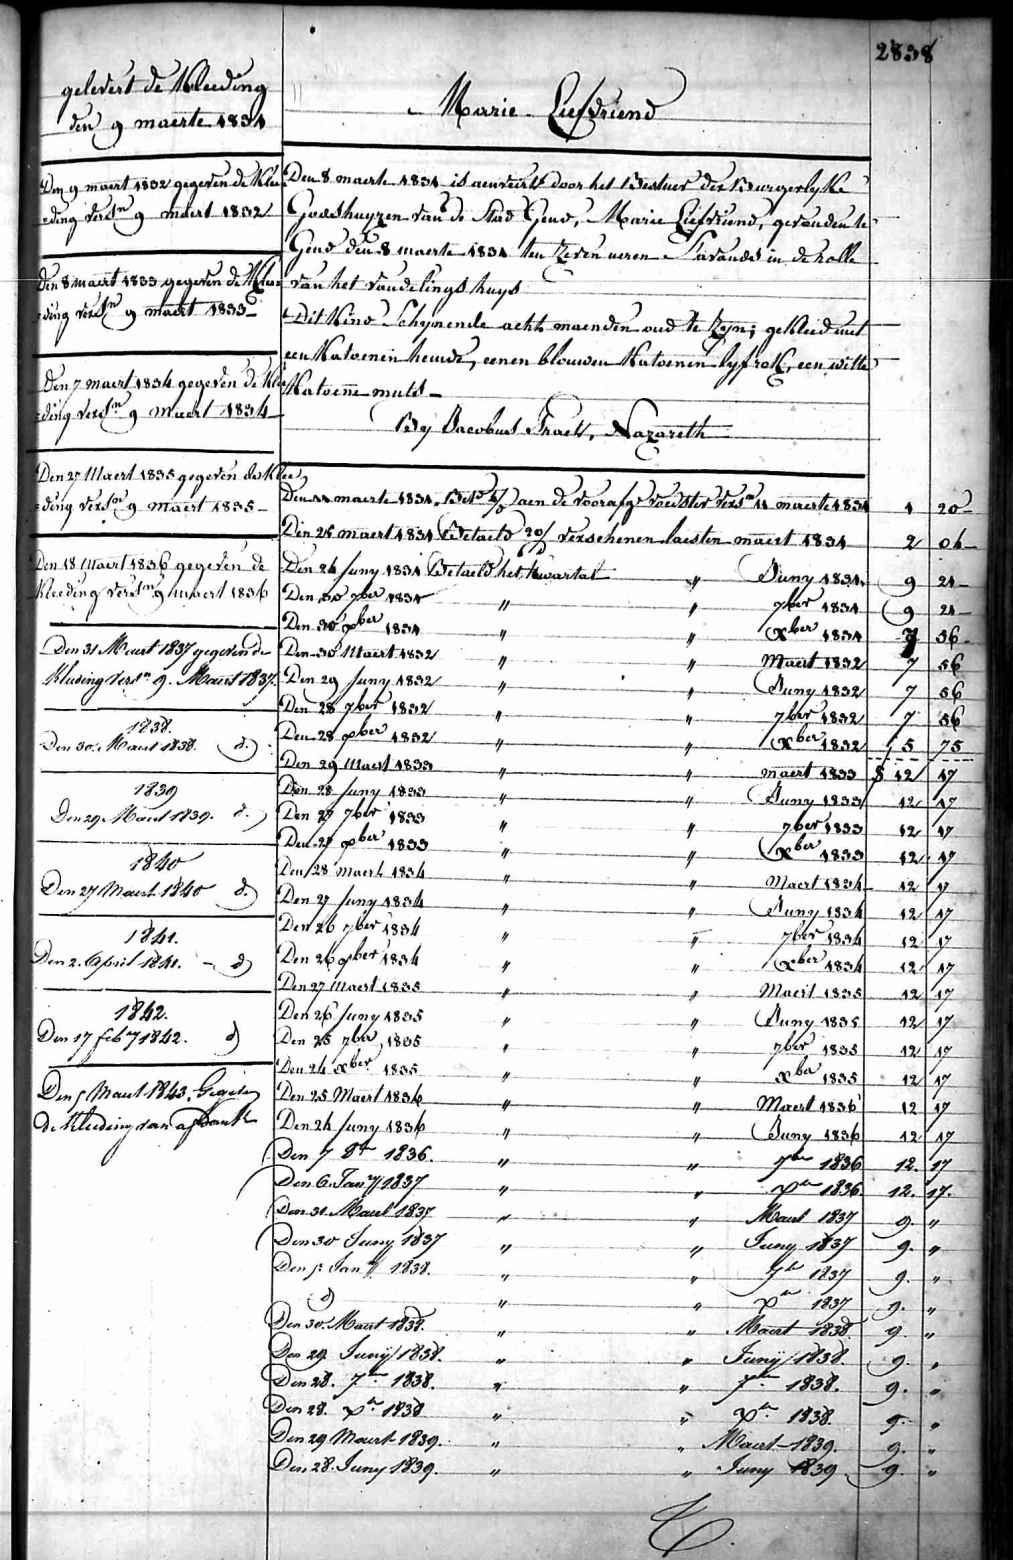 2838
gelevert de Kleeding
den 9 maerte 1831
Marie Liefdriend
Den 9 maert 1832 gegeven de Klee
=ding versn 9 maert 1832
Den 8 maert 1833 gegeven de Klee
=ding versn 9 maert 1833
Den 7 maert 1834 gegeven de Klee
=ding versn 9 maert 1834
Den 27 Maert 1835 gegeven de Klee
=ding versn 9 maert 1835
Den 18 Maert 1836 gegeven de
Kleeding versn 9 maert 1836
Den 31 Maert 1837 gegeven de
Kleding versn 9. Maert 1837.
1838.
Den 30. Maert 1838. d.
1839
Den 29. Maert 1839. d.
1840
Den 27 Maert 1840 d.
1841.
Den 2. April 1841. - d
1842.
Den 17 feby 1842. d
Den Maert 1843. Gegeven
de Kleeding van
Den 8 maerte 1831 is aenveird door het Bestuer der Burgerlyke
Godshuyzen van de Stad Gend, Marie Liefdriend, gevonden te
Gend den 8 maerte 1831 ten zeven uren s'avonds in de holle
van het vondelings huys
Dit Kind Schynende acht maenden oud te zyn; gekleed met
een Katoenen hemde, eenen blouwen Katoenen lyfrok, een witte
Katoene muts -
By Jacobus, Nazareth
Den 11 maerte 1831 aen de voorafge voedster versn 11 maerte 1831 1 20
Den 25 maert 1831 Betaeld verschenen laesten maert 1831 2 04
Den 24 Juny 1831 Betaeld het Kwartal " Juny 1831 9 24
Den 30 7ber 1831 " " 7ber 1831 9 24
Den 30 xber 1831 " xber 1831 7 56
Den 30 Maert 1832 " " Maert 1832 7 56
Den 29 Juny 1832 " " Juny 1832 7 56
Den 28 7ber 1832 " " 7ber 1832 7 56
Den 28 xber 1832 " " xber 1832 5 75
Den 29 Maert 1833 " " maert 1833 $ 12 17
Den 28 Juny 1833 " " Juny 1833 12 17
Den 27 7ber 1833 " " 7ber 1833 12 17
Den 27 xber 1833 " " xber 1833 12 17
Den 28 Maert 1834 " " Maert 1834 12 17
Den 27 Juny 1834 " " Juny 1834 12 17
Den 26 7ber 1834 " " 7ber 1834 12 17
Den 26 xber 1834 " " xber 1834 12 17
Den 27 Maert 1835 " " Maert 1835 12 17
Den 26 Juny 1835 " " Juny 1835 12 17
Den 25 7ber 1835 " " 7ber 1835 12 17
Den 24 xber 1835 " " xber 1835 12 17
Den 25 Maert 1836 " " Maert 1836 12 17
Den 24 Juny 1836 " " Juny 1836 12 17
Den 7 8br 1836. " " 7br 1836 12. 17
Den 6 Jany 1837 " " xbr 1836 12. 17.
Den 31. Maert 1837 " " Maert 1837 9. "
Den 30 Juny 1837 " " Juny 1837 9. "
Den Jany 1838. " " 7br 1837 9. "
d " " xbr 1837 9. "
Den 30. Maert 1838. " " Maert 1838 9. "
Den 29 Juny 1838. " " Juny 1838. 9. "
Den 28. 7br 1838. " " 7br 1838. 9. "
Den 28. xbr 1838 " " xbr 1838. 9. "
Den 29 Maert 1839. " " Maert 1839. 9. "
Den 28. Juny 1839. " " Juny 1839 9. "